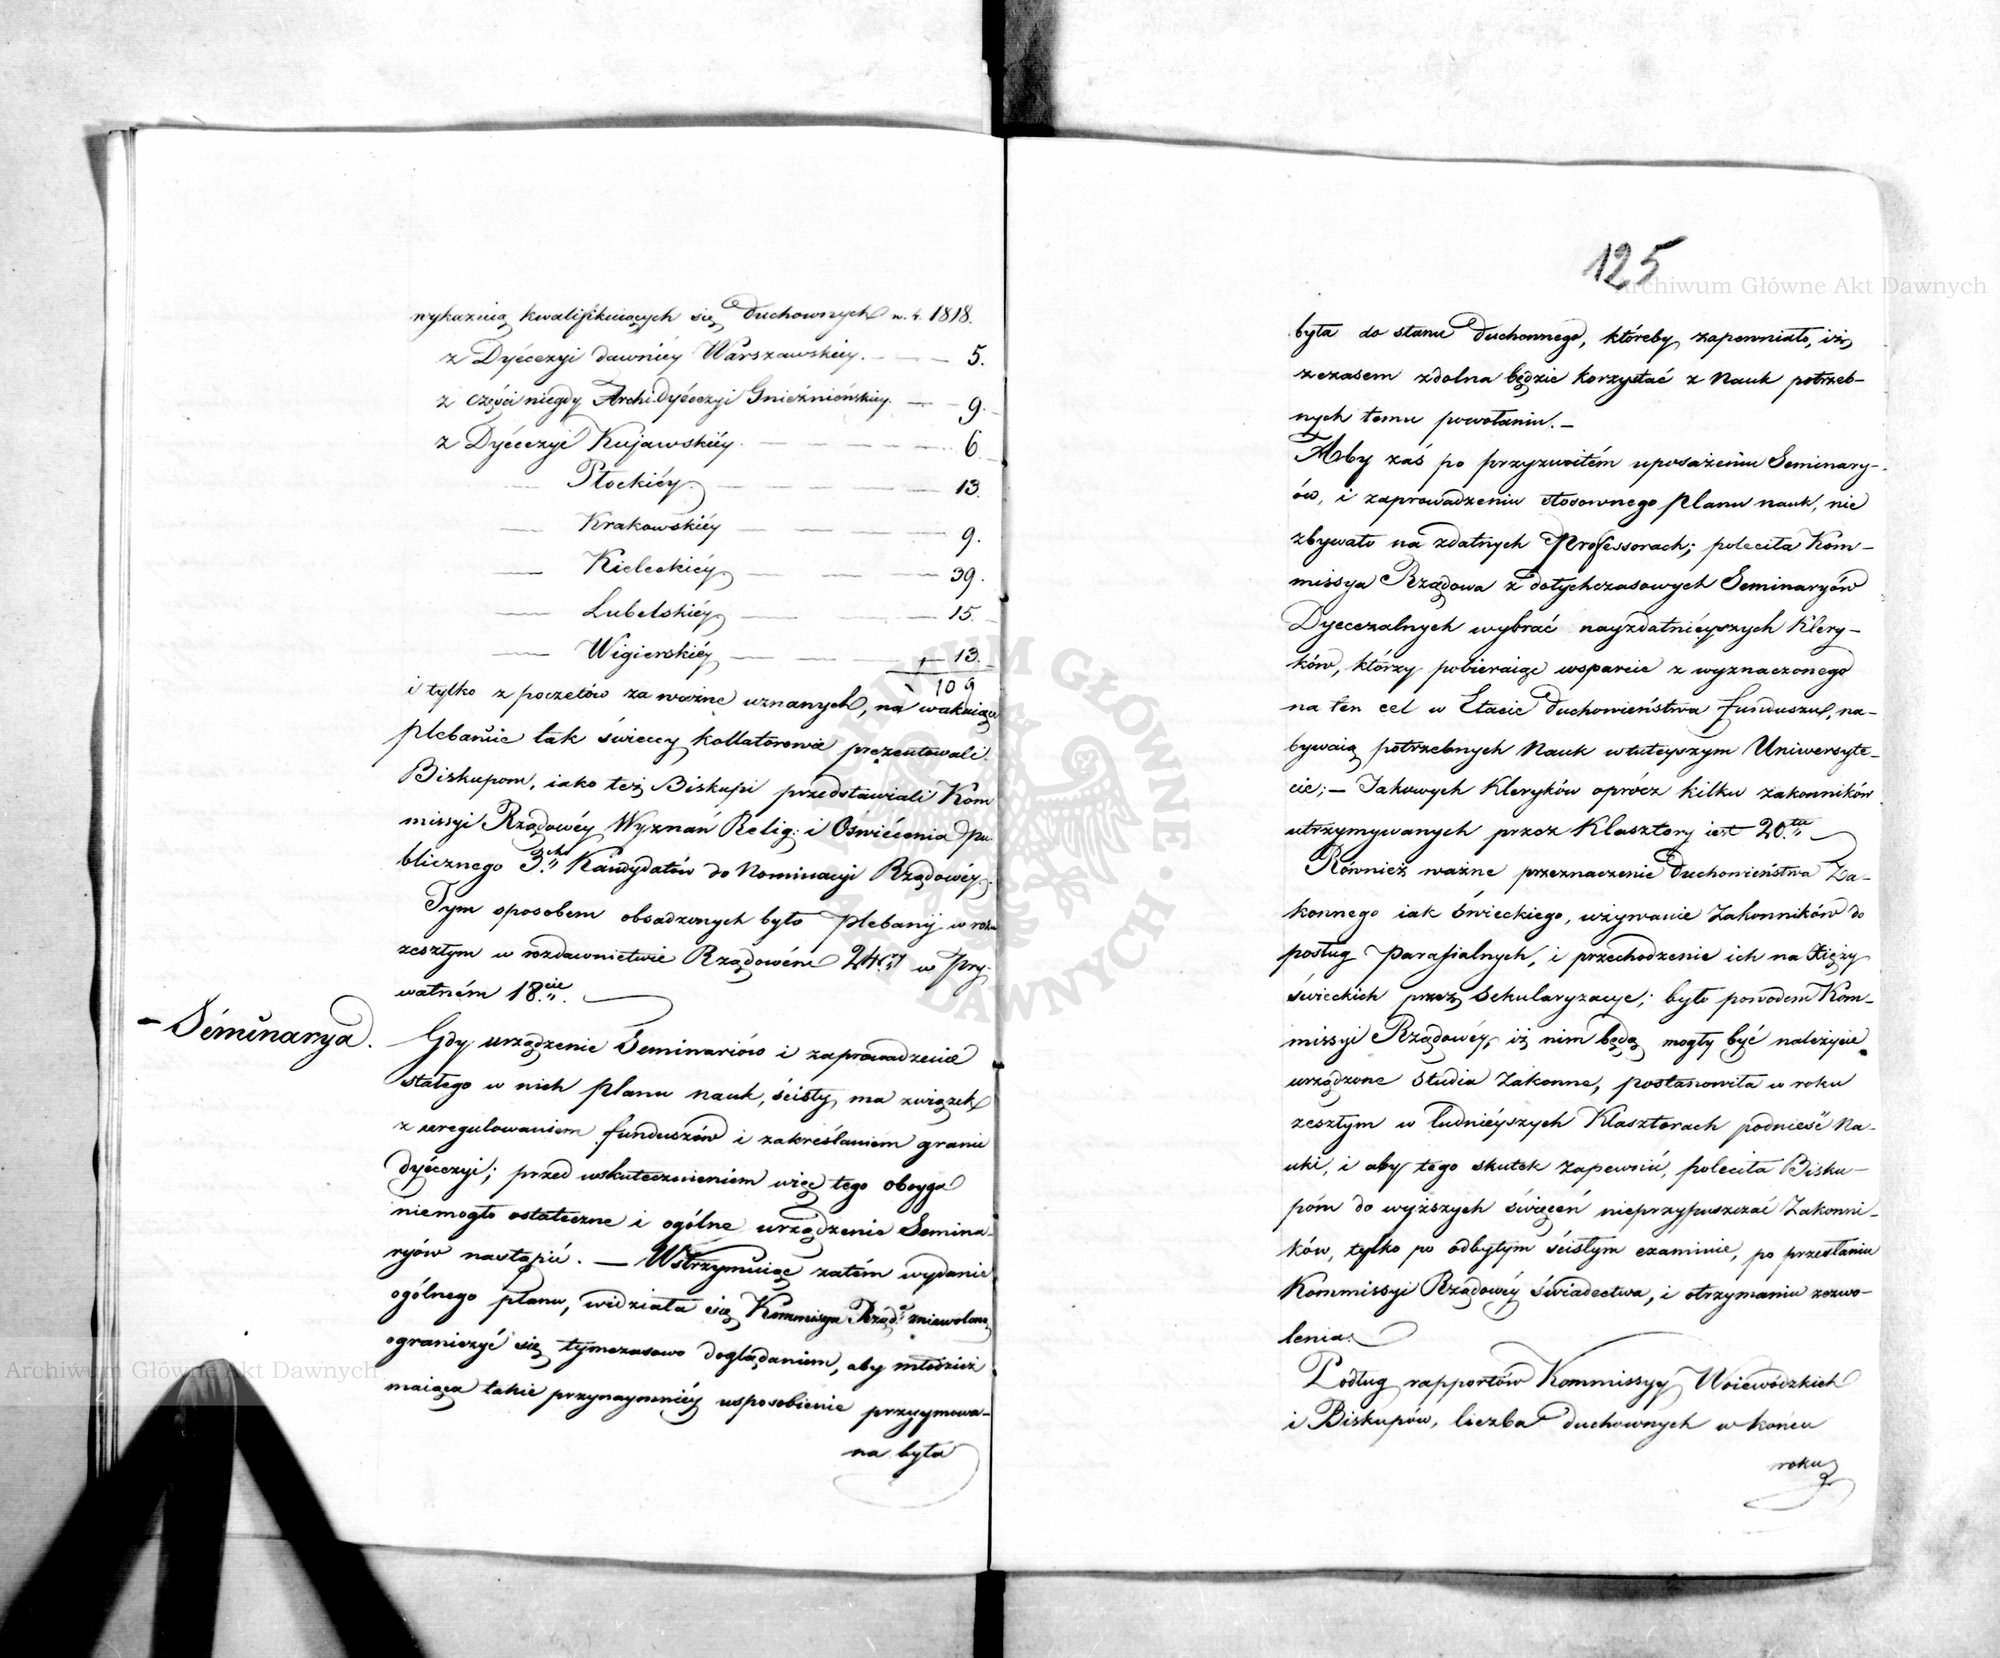 wykazuią kwalifikuiących się Duchownych w r. 1818.
z Dyécezyi dawniéy Warszawskiéy. — — 5.
z części niegdy Archi-Dyécezyi Gnieźnieńskiéy. — — 9.
z Dyécezyi Kujawskiéy. — — — 6.
— Płockiéy. — — — 13.
— Krakowskiéy — — — 9.
— Kieleckiéy — — — 39.
— Lubelskiéy — — — 15.
— Wigierskiéy — — — 13.
109
i tylko z poczetów za ważne uznanych, na wakuiące
plebanie tak świeccy kollatorowie prezentowali
Biskupom, iako też Biskupi przedstawiali Kom
missyi Rządowéy Wyznań Relig: i Oświécenia Pu
blicznego 3ch Kandydatów do Nominacyi Rządowéy.
Tym sposobem obsadzonych było Plebanij w roku
zeszłym w rozdawnictwie Rządowém 24 w Pry
watném 18cie.
– Séminarya.
Gdy urządzenie Seminariów i zaprowadzenie
stałego w nich planu nauk, ścisły ma związek
z uregulowaniem funduszów i zakreśleniem granic
dyécezyi; przed uskutecznieniem więc tego oboyga
niemogło ostateczne i ogólne urządzenie Semina-
ryów nastąpić. — Wstrzymuiąc zatém wydanie
ogólnego planu, widziała się Kommisya Rząd: zniewoloną
ograniczyć się tymczasowo doglądaniem, aby młodzież
maiąca takie przynaymniéy usposobienie przyymowa-
na była
125
była do stanu Duchownego, któreby zapewniało, iż
z czasem zdolna będzie korzystać z Nauk potrzeb-
nych temu powołaniu. —
Aby zaś po przyzwoitém uposażeniu Seminary-
ów, i zaprowadzeniu stosownego planu nauk, nie
zbywało na zdatnych Professorach; poleciła Kom-
missya Rządowa z dotychczasowych Seminaryów
Dyecezalnych wybrać nayzdatnieyszych Klery-
ków, którzy pobieraiąc wsparcie z wyznaczonego
na ten cel w Etacie Duchowieństwa funduszu, na-
bywaią potrzebnych Nauk w tuteyszym Uniwersyte-
cie; — Jakowych Kleryków oprócz kilku zakonników
utrzymywanych przez Klasztory iest 20tu
Również ważne przeznaczenie Duchowieństwa Za-
konnego iak świeckiego, używanie Zakonników do
posług Parafialnych, i przechodzenie ich na Xięży
świeckich przez Sekularyzacye; było powodem Kom-
missyi Rządowéy, iż nim będą mogły być należycie
urządzone Studia Zakonne, postanowiła w roku
zeszłym w ludnieyszych Klasztorach podnieść Na-
uki, i aby tego skutek zapewnić, poleciła Bisku-
póm do wyższych święceń nieprzypuszczać Zakonni-
ków, tylko po odbytym ścisłym examinie, po przesłaniu
Kommissyi Rządowéy świadectwa, i otrzymaniu zezwo-
lenia.
Podług rapportów Kommissyy Woiewódzkich
i Biskupów, liczba duchownych w końcu
roku
Archiwum Główne Akt Dawnych
Archiwum Główne Akt Dawnych
ARCHIWUM GŁÓWNE AKT DAWNYCH